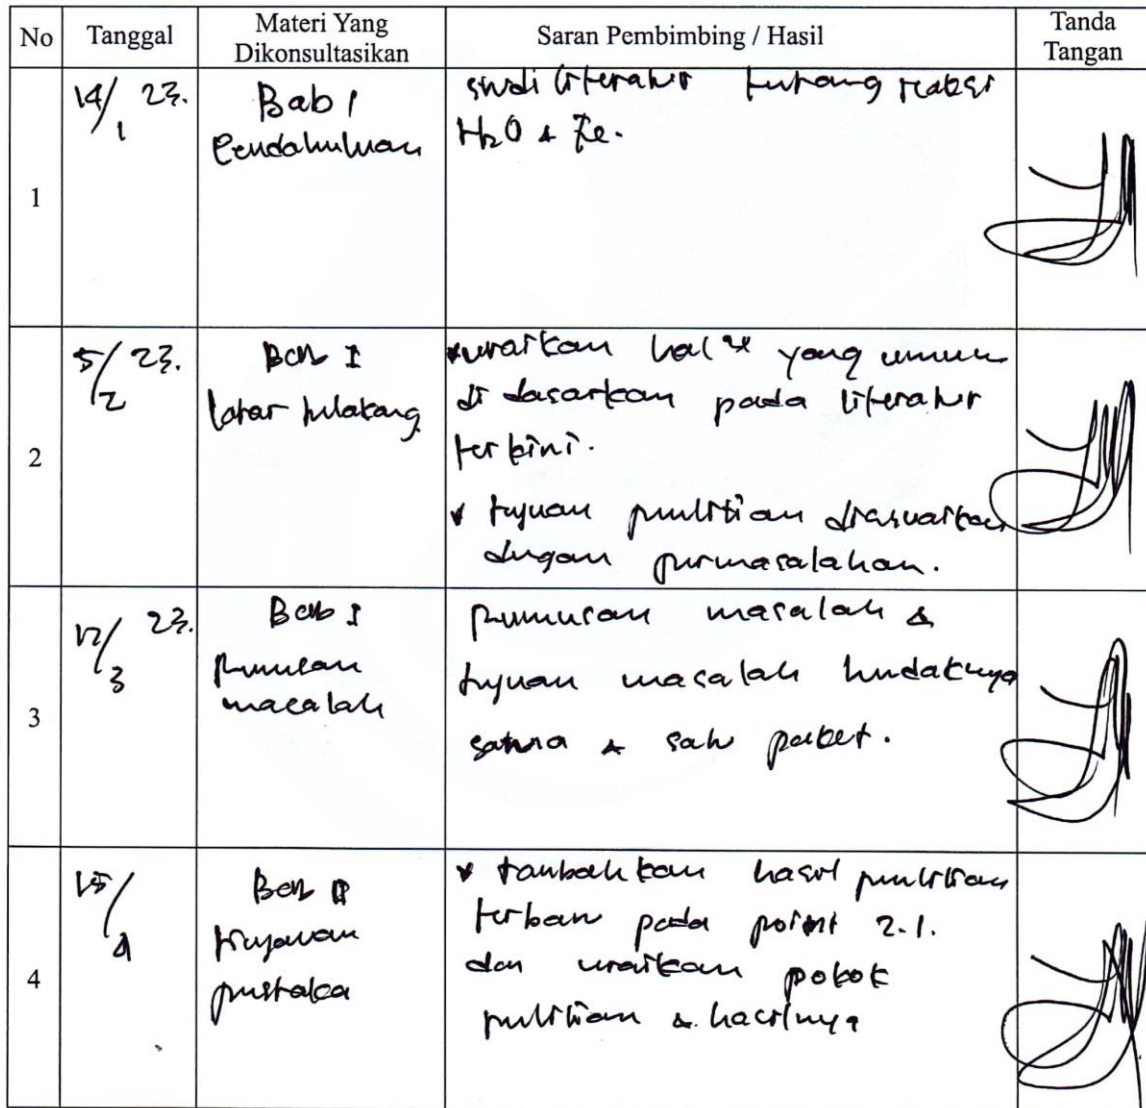 No Tanggal Materi Yang Dikonsultasikan Saran Pembimbing / Hasil Tanda Tangan
1
14/1 23.
Bab I
Pendahuluan
studi literatur tentang reaksi
H₂O & Fe.
2
5/2 23.
Bab I
latar belakang
* uraikan hal² yang umum
di dasarkan pada literatur
terkini.
* tujuan penelitian disesuaikan
dengan permasalahan.
3
17/3 23.
Bab I
Rumusan
masalah
Rumusan masalah &
tujuan masalah hendaknya
sama & satu paket.
4
15/4
Bab II
tinjauan
pustaka
* tambahkan hasil penelitian
terbaru pada point 2.1.
dan uraikan pokok
penelitian & hasilnya